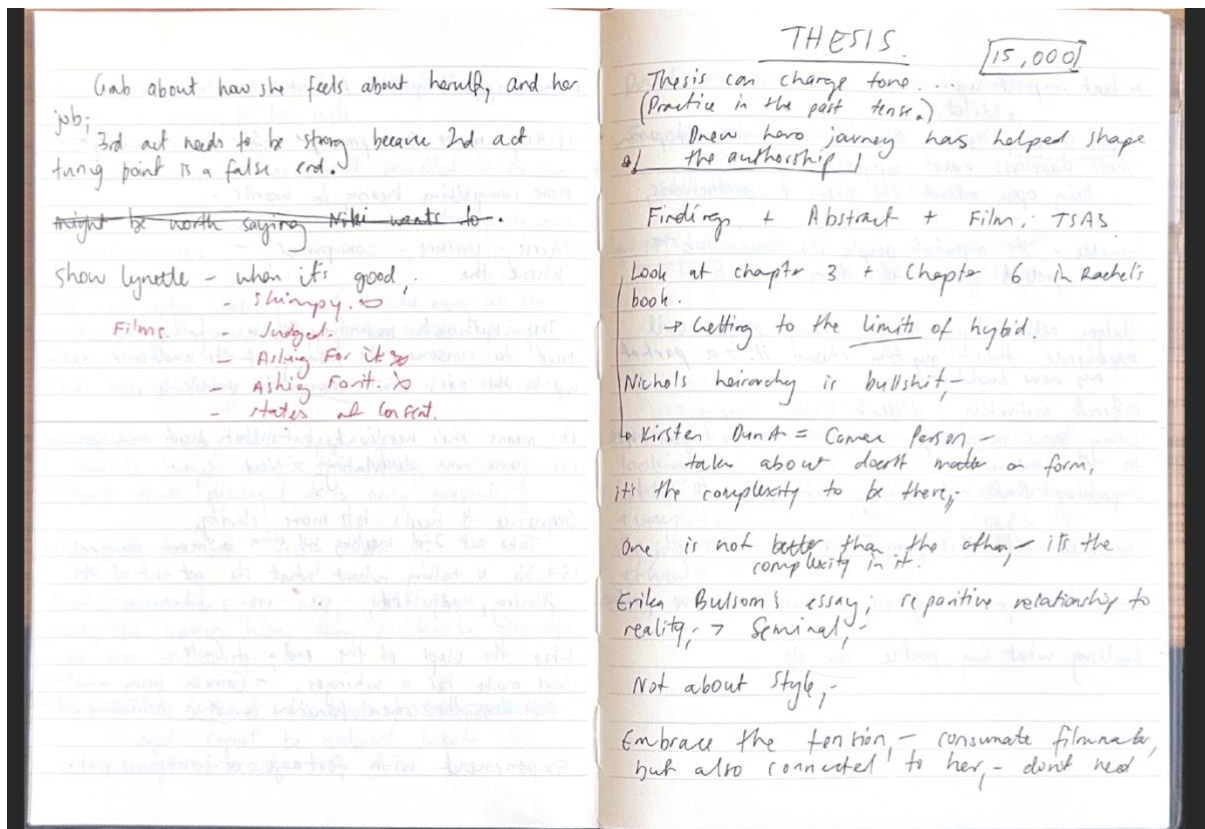 Grab about how she feels about herself, and her
job;
3rd act needs to be strong because 2nd act
turnig point is a false end.
might be worth saying Niki wants to.
Show Lynette - when it's good,
- Shimpy.
Films. - Judged.
- Asking For it
- Ashig For it.
- states of Consent.
THESIS.
15,000
Thesis can change tone...
(Practice in the past tense.)
Drew hero journey has helped shape
of the authorship!
Findings + Abstract + Film. TSAS
Look at chapter 3 + Chapter 6 in Rachel's
book.
→ Getting to the limits of hybid.
Nichols heirarchy is bullshit,-
Kirsten Dunst = Camera Person,-
talks about doesn't matter on form,
it's the complexity to be there,-
One is not better than the other,- it's the
complexity in it.
Erika Bulsom's essay; reparitive relationship to
reality,- > Seminal,-
Not about style,-
Embrace the tension,- consumate filmmaker,
but also connected to her,- don't need